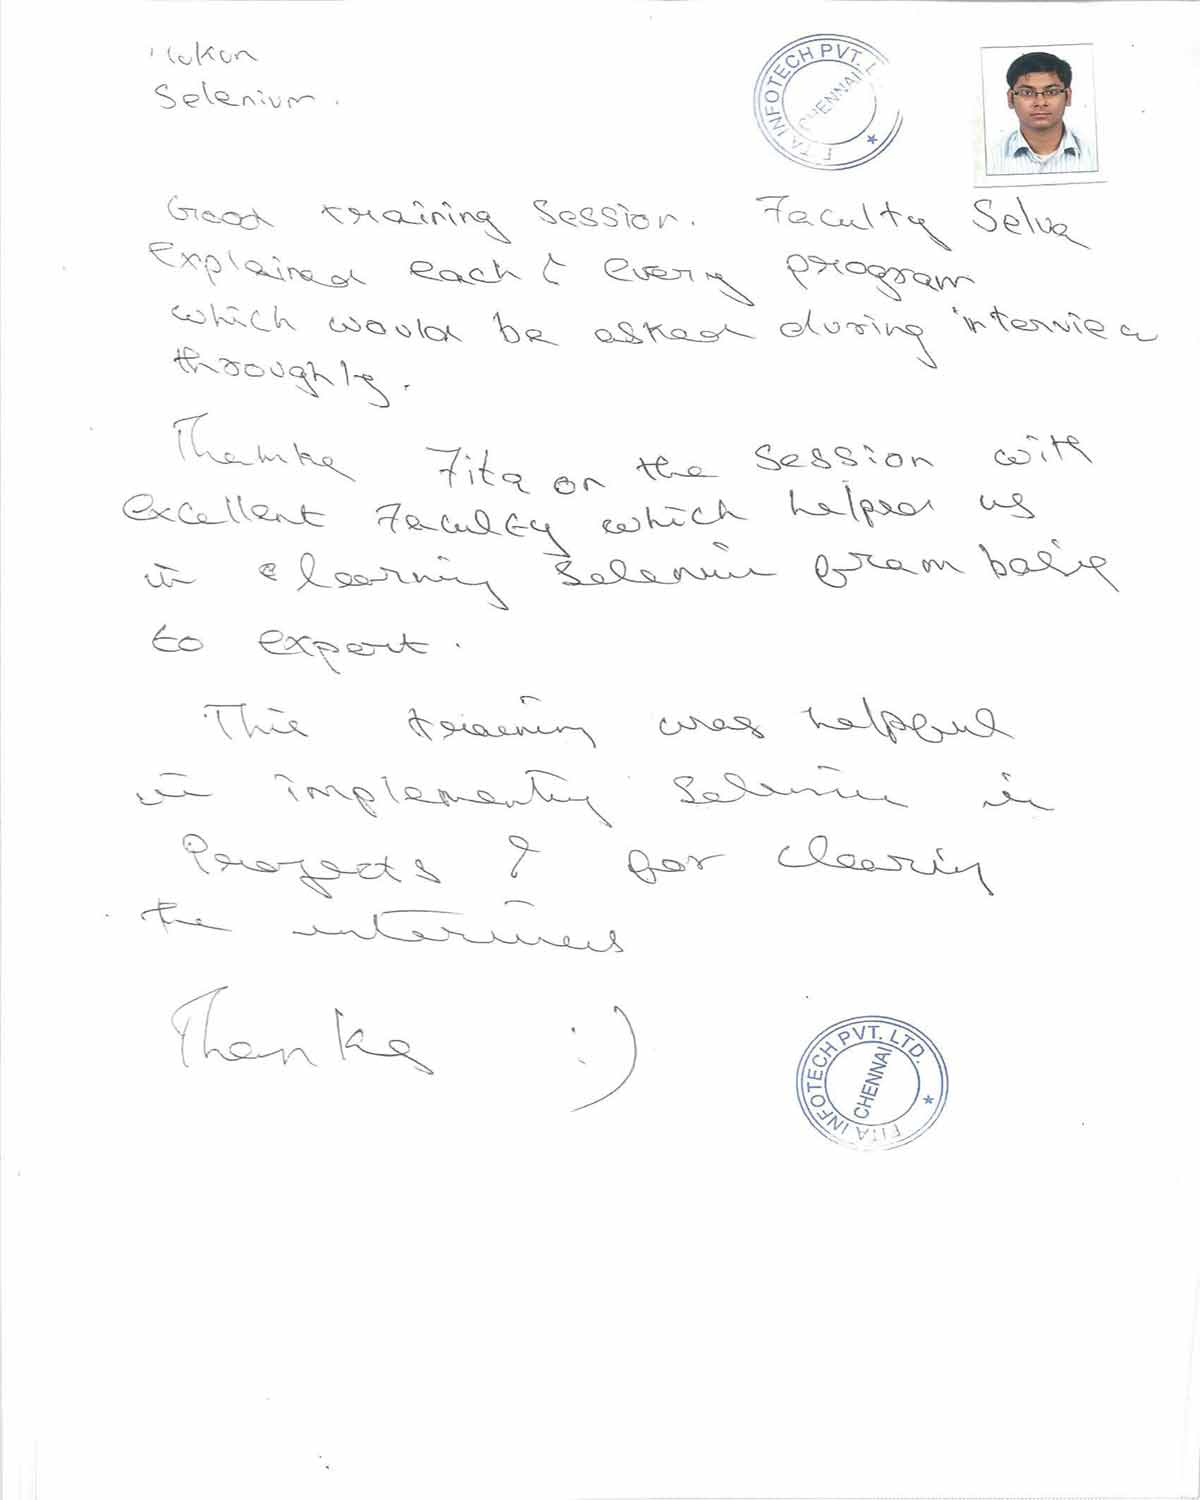 Selenium.
FITA INFOTECH PVT. L
CHENNAI
Good training session. Faculty Selva
Explained each & every program
which would be asked during interview
throughly.
Thanks Fita on the session with
excellent Faculty which helped us
in learning Selenium from basic
to expert.
This training was helpful
in implementing Selenium in
Projects & for clearing
the interviews
Thanks :)
FITA INFOTECH PVT. LTD.
CHENNAI